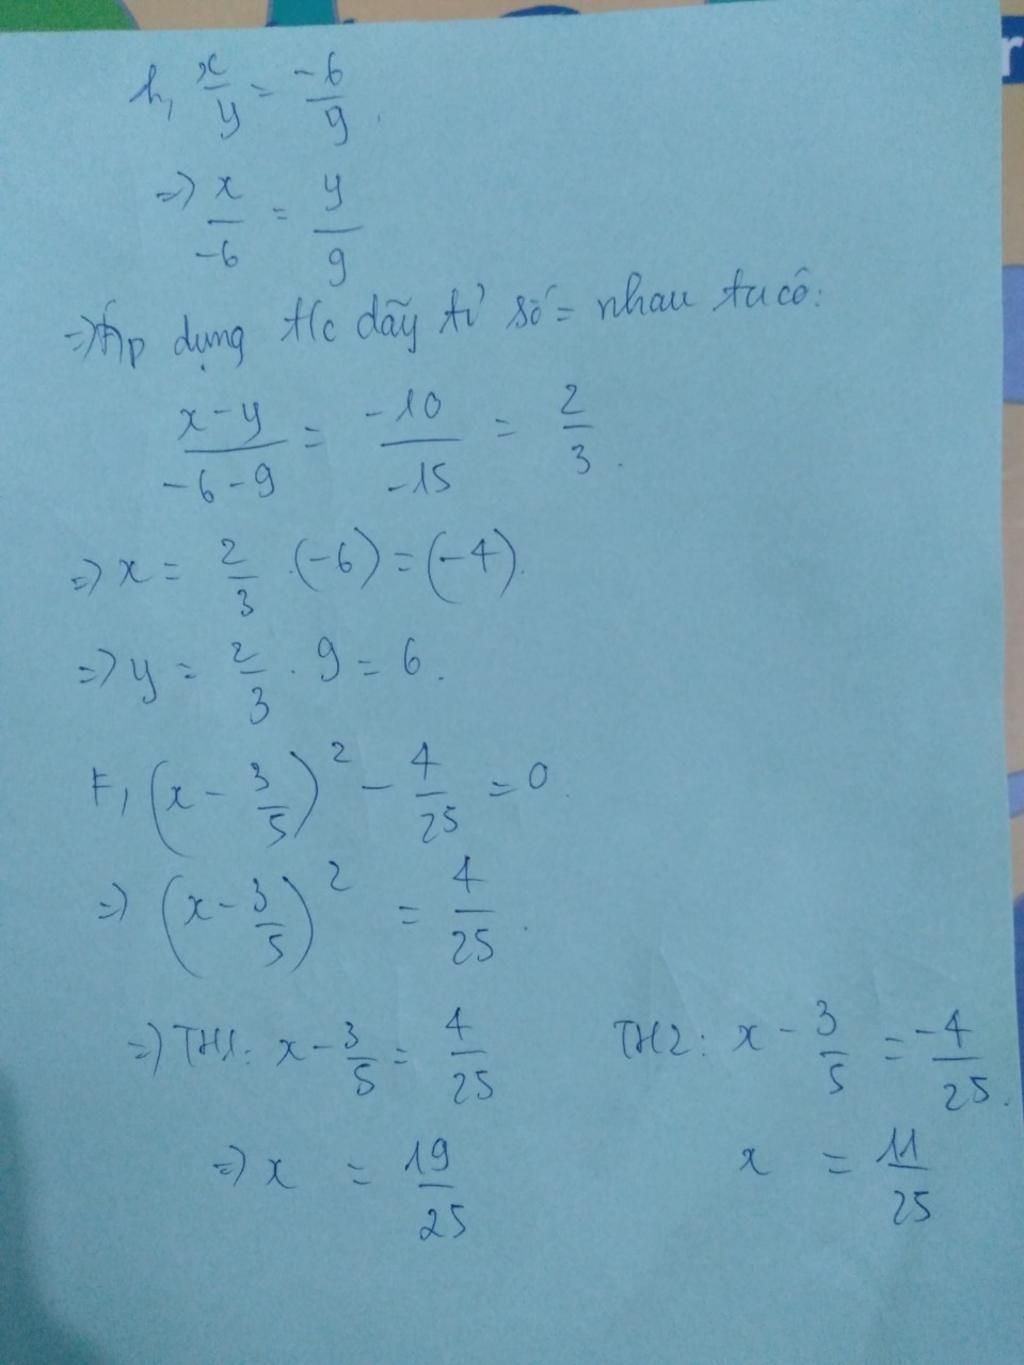 h, x/y = -6/9.
=> x/-6 = y/9
=> Áp dụng t/c dãy tỉ số = nhau ta có:
x-y/-6-9 = -10/-15 = 2/3.
=> x = 2/3 . (-6) = (-4).
=> y = 2/3 . 9 = 6.
F, (x - 3/5)² - 4/25 = 0.
=> (x - 3/5)² = 4/25.
=> TH1: x - 3/5 = 4/25 TH2: x - 3/5 = -4/25.
=> x = 19/25 x = 11/25
r